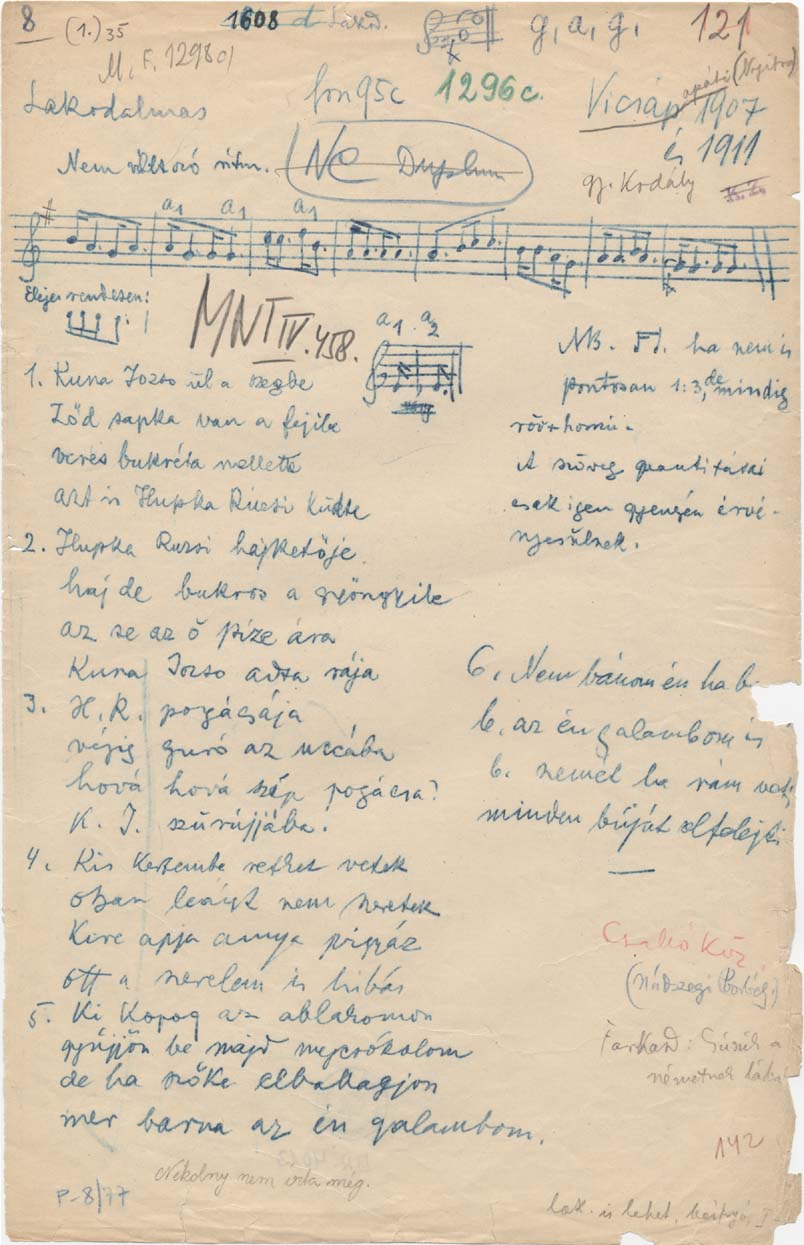 8 (1.) 35 1608 Lakd. g, a, g, 121
M. F. 1298 c)
Lakodalmas fon 95c 1296c. Vicsáp apáti (Nyitra) 1907
és 1911
Nem változó ritm. NC Duplum
gy. Kodály
a1 a1 a1
Eleje rendesen:
MNT IV. 458.
a1. a2
NB. ha nem is
pontosan 1:3, de mindig
rövi-hosszú.
A szöveg quantitásai
csak igen gyengén érvé-
nyesülnek.
1. Kuna Jozso ül a szegbe
Zöd sapka van a fejibe
veres bukréta mellette
azt is Hupka Rucsi küdte
2. Hupka Ruzsi hajketője
haj de bukros a gyöngyibe
az se az ő pize ára
Kuna Jozso adta rája
3. H. R. pogácsája
végig guró az uccába
hová hová szép pogácsa?
K. J. szűrújjába!
4. Kis kertembe retket vetek
ojan leányt nem szeretek
Kire apja annya vigyáz
ott a szerelem is hibás
5. Ki kopog az ablakomon
gyüjjön be majd megcsókolom
de ha szőke elballagjon
mer barna az én galambom.
6. Nem bánom én ha b.
b. az én galambom is
b. szemét ha rám veti
minden búját elfelejti
Csalló köz.
(Nádszegi
Farkasd: Süsük a
németnek
142
Nikolny nem irta még.
P-8/77
lak. is lehet,